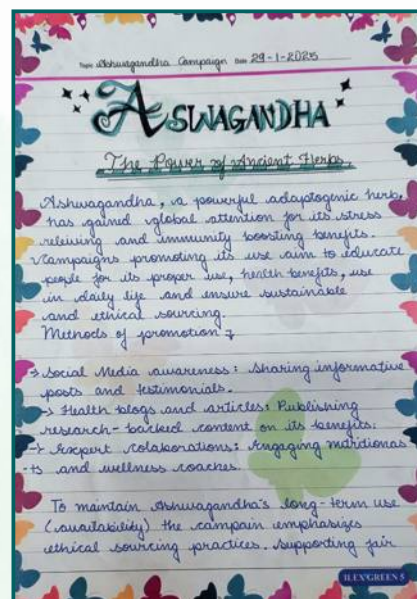 Topic Ashwagandha Campaign Date 29-1-2025
ASWAGANDHA
The Power of Ancient Herbs.
Ashwagandha, a powerful adaptogenic herb,
has gained global attention for its stress
relieving and immunity boosting benefits.
Campaigns promoting its use aim to educate
people for its proper use, health benefits, use
in daily life and ensure sustainable
and ethical sourcing.
Methods of promotion
→ Social Media awareness: Sharing informative
posts and testimonials.
→ Health blogs and articles: Publishing
research-backed content on its benefits.
→ Expert colaborations: Engaging
-ts and wellness coaches.
To maintain Ashwagandha's long-term use
(availability) the campain emphasizes
ethical sourcing practices. Supporting fair
ILEX'GREEN 5